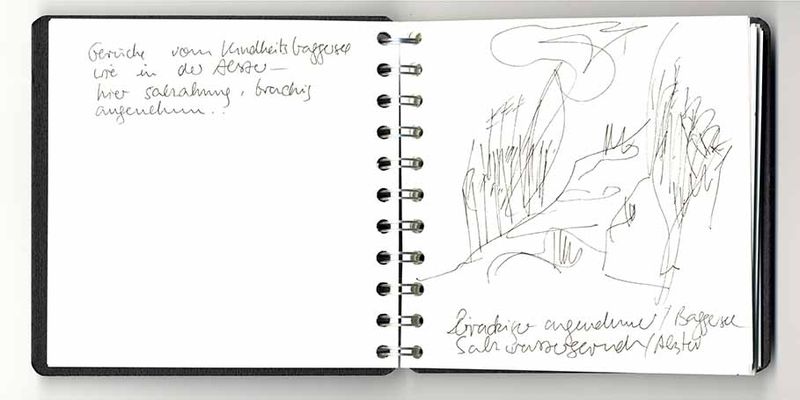 Gerüche vom Kindheitsbaggersee
wie in der Alster —
hier salzahnung, brackig
angenehm..
Brackiger angenehmer / Baggersee
Salzwassergeruch / Alster